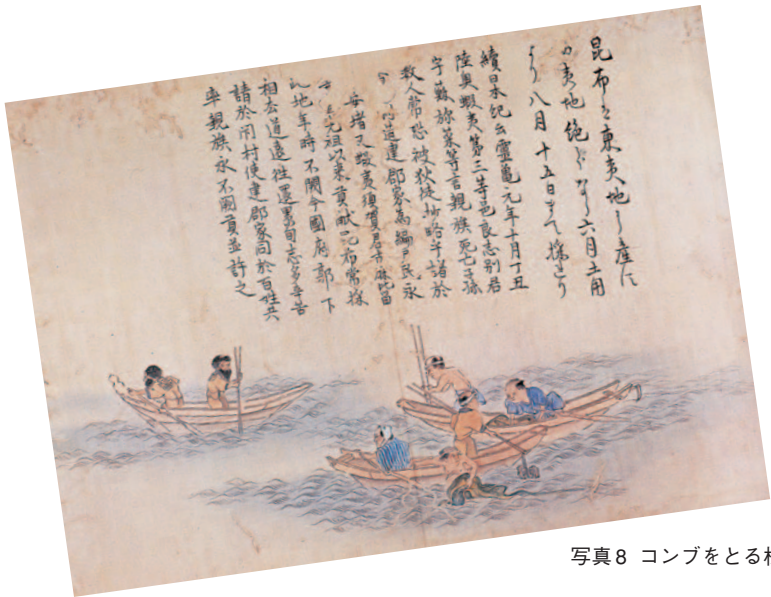 昆布ハ東夷地の産に
の夷地絶てなし六月土用
より八月十五日まて採なり
續日本紀云靈亀元年十月丁丑
陸奥蝦夷第三等邑良志別君
宇 弥 等言親族死亡子孫
数人常恐被狄徒抄略乎請於
造建郡家為編戸民永
安堵又蝦夷須賀君古麻比留
元祖以来貢献昆布常採
此地年時不闕今國府郭下
相去道遠往還累旬 多辛苦
請於閇村便建郡家同於百姓共
率親族永不闕貢並許之
写真8 コンブをとる